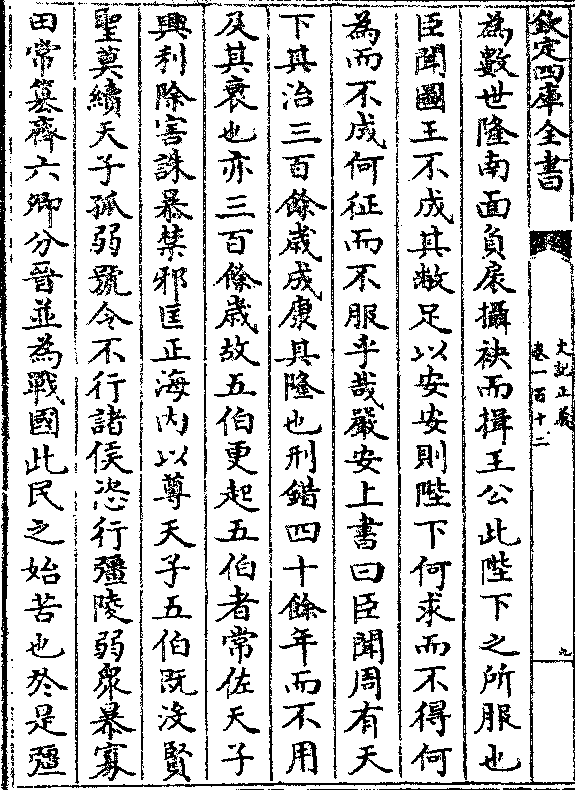 欽定四庫全書
史記正義
卷一百十二
九
為數世隆南面負扆攝袂而揖王公此陛下之所服也
臣聞圖王不成其敝足以安安則陛下何求而不得何
為而不成何征而不服乎哉嚴安上書曰臣聞周有天
下其治三百餘歳成康其隆也刑錯四十餘年而不用
及其衰也亦三百餘歳故五伯更起五伯者常佐天子
興利除害誅暴禁邪匡正海内以尊天子五伯既沒賢
聖莫續天子孤弱號令不行諸侯恣行彊陵弱衆暴寡
田常簒齊六卿分晉並為戰國此民之始苦也於是彊